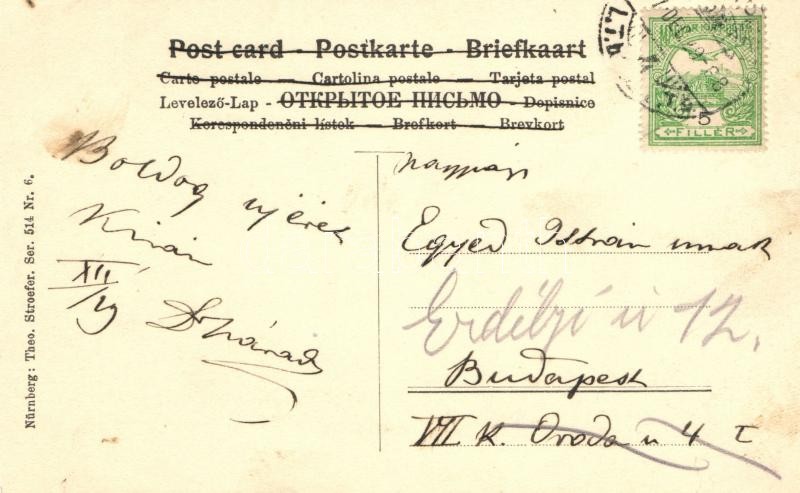 Post card - Postkarte - Briefkaart
Carte postale — Cartolina postale — Tarjeta postal
Levelező-Lap - ОТКРЫТОЕ ПИСЬМО - Dopisnice
Korespondenční lístek — Brefkort — Brevkort
Boldog új évet
Kíván
XII/29
Egyed István urnak
Erdélyi ú 12.
Budapest
VII K. Óvoda u 4 I
Nürnberg: Theo. Stroefer. Ser. 514 Nr. 6.
5
FILLÉR